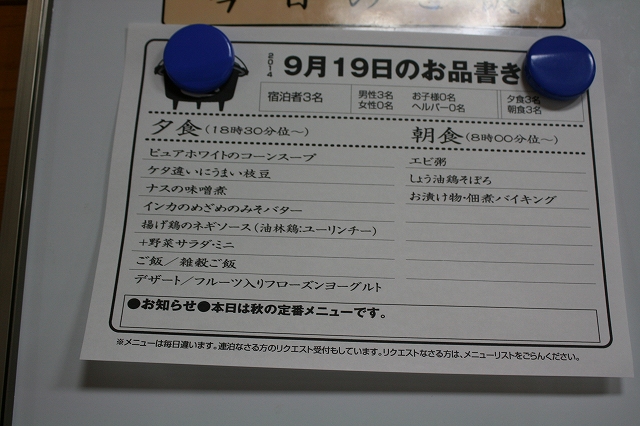 2014
9月19日のお品書き
宿泊者3名
男性3名
女性0名
お子様0名
ヘルパー0名
夕食3名
朝食3名
夕食(18時30分位~)
ピュアホワイトのコーンスープ
ケタ違いにうまい枝豆
ナスの味噌煮
インカのめざめのみそバター
揚げ鶏のネギソース(油林鶏:ユーリンチー)
+野菜サラダ・ミニ
ご飯/雑穀ご飯
デザート/フルーツ入りフローズンヨーグルト
朝食(8時00分位~)
エビ粥
しょう油鶏そぼろ
お漬け物・佃煮バイキング
●お知らせ●本日は秋の定番メニューです。
※メニューは毎日違います。連泊なさる方のリクエスト受付もしています。リクエストなさる方は、メニューリストをごらんください。